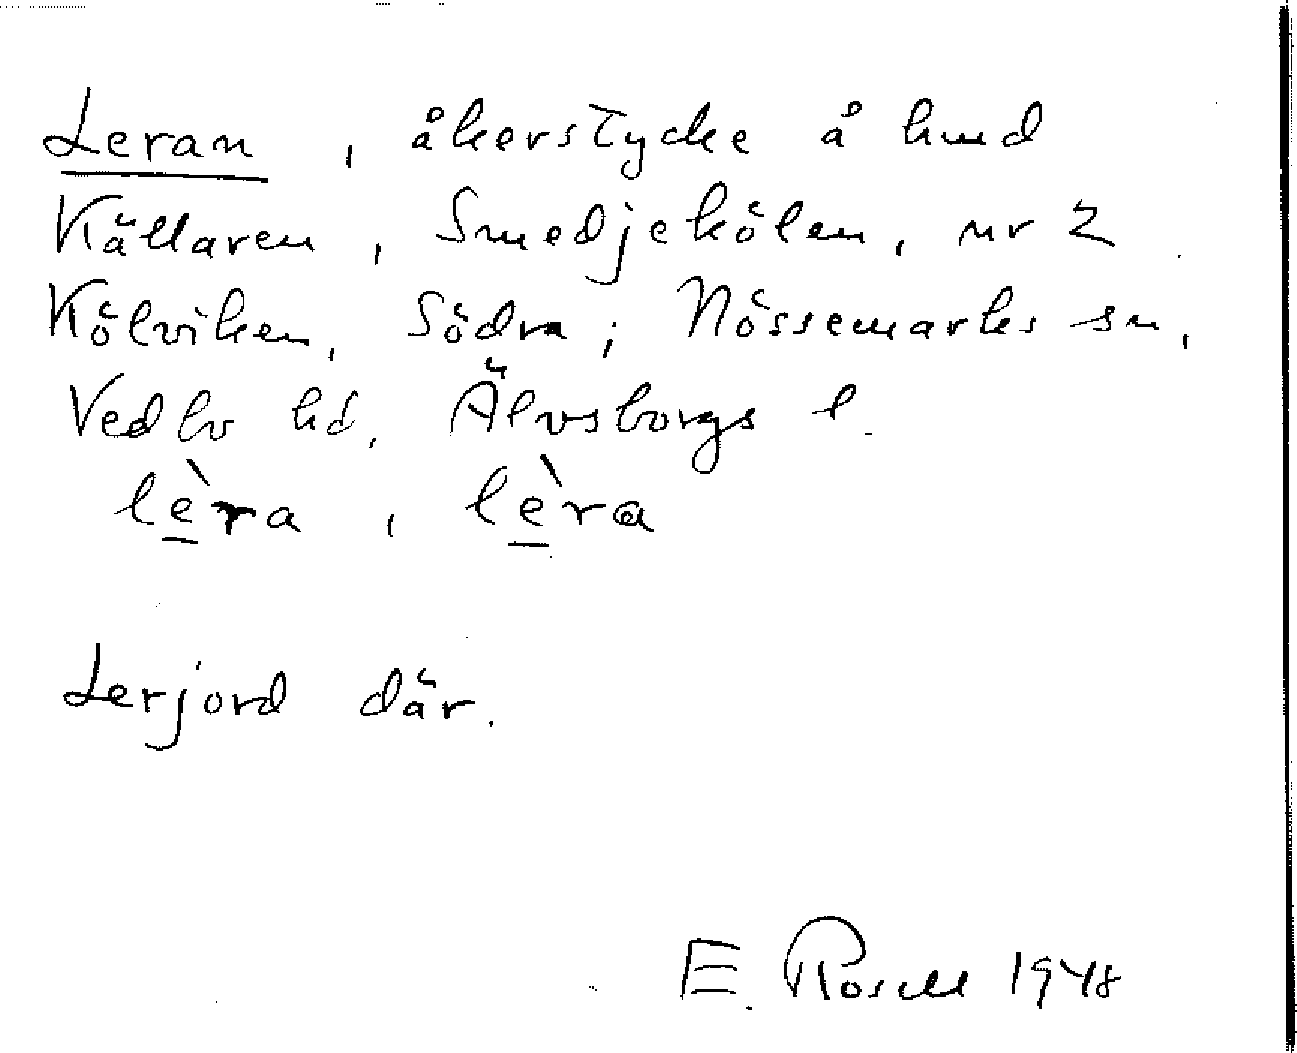 Leran, åkerstycke å hmd
Källaren, Smedjekölen, nr 2
Kölviken, Södra; Nössemarks sn,
Vedbo hd, Älvsborgs l.
lè̱ra, lè̱rɑ
Lerjord där.
E. Rosell 1948